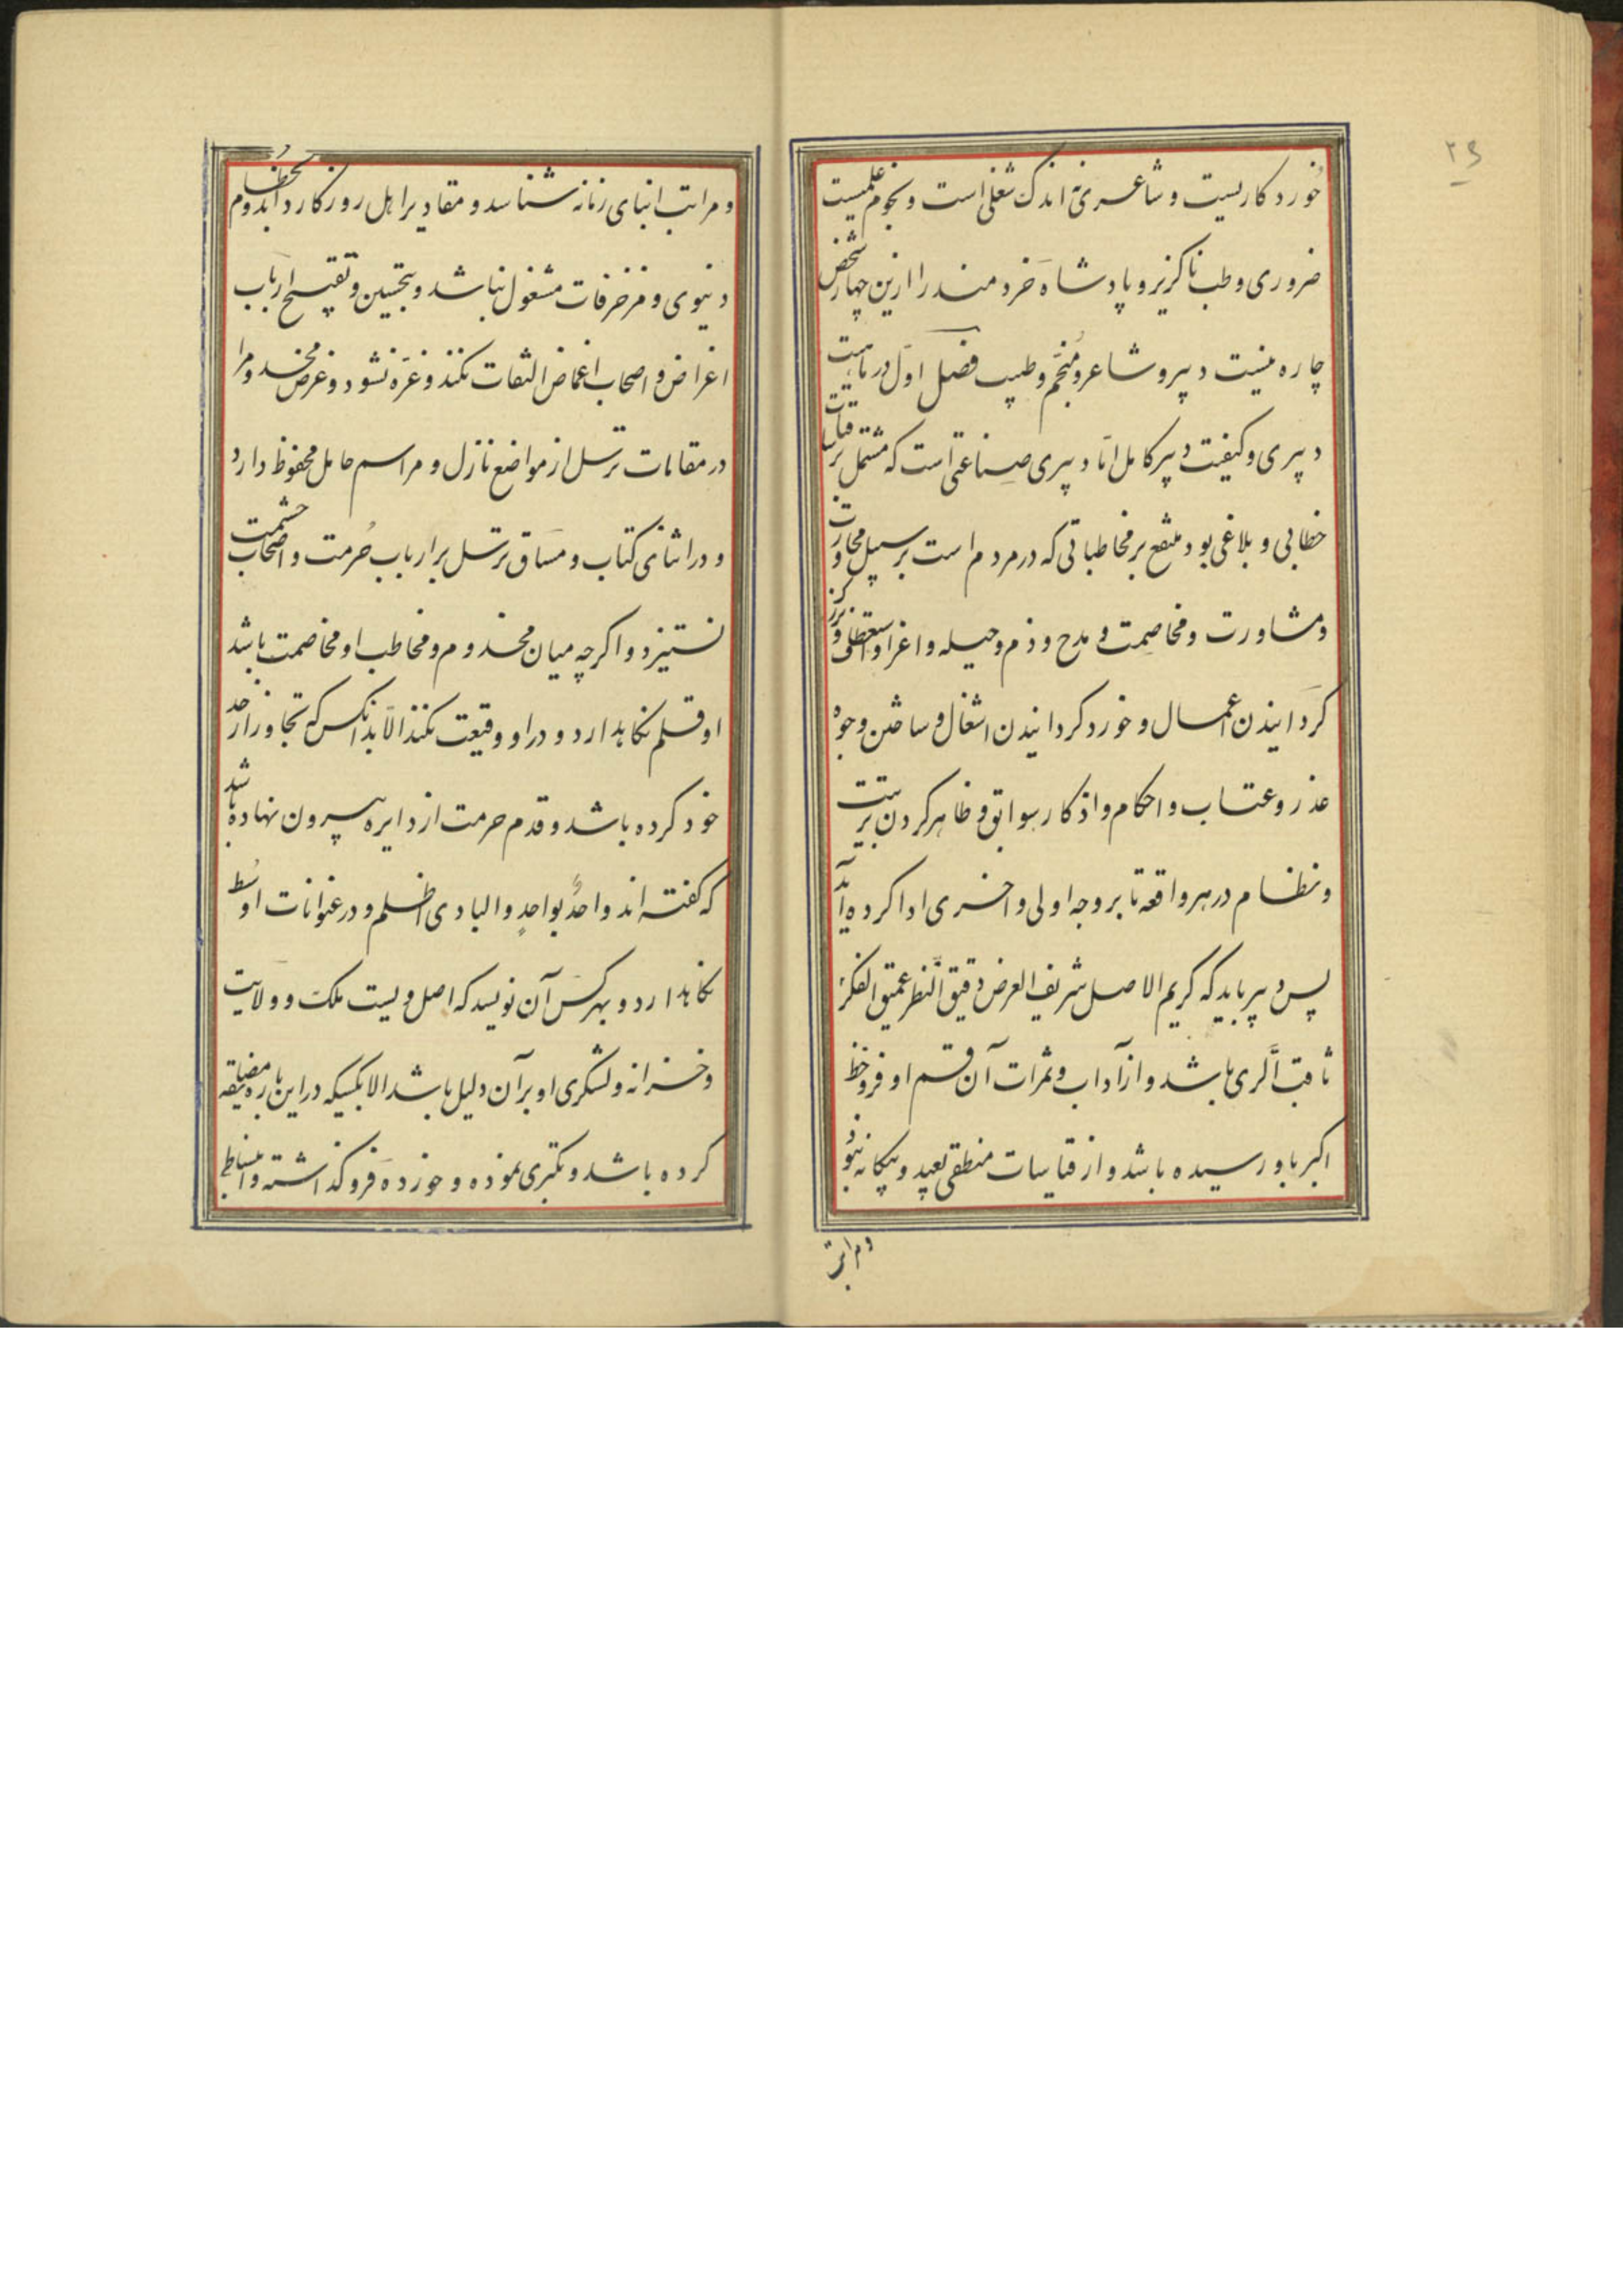 خورد کاریست و شاعری نه اندک شغلی است و نجوم علمیست
ضروری و طب ناگزیر و پادشاه خردمند را ازین چهار شخص
چاره نیست دبیر و شاعر و منجم و طبیب فصل اول در ماهیت
دبیری و کیفیت دبیر کامل اما دبیری صناعتی است که مشتمل بر قیاسات
خطابی و بلاغی بود منتفع بر مخاطباتی که در مردم است بر سبیل محاورت
و مشاورت و مخاصمت و مدح و ذم و حیله و اغرا و استعطاف و بزرگ
گردانیدن اعمال و خورد گردانیدن اشغال و ساختن وجوه
عذر و عتاب و احکام و اذکار سوابق و ظاهر کردن ترتیب
و نظام در هر واقعه تا بر وجه اولی و احری ادا کرده آید
پس دبیر باید که کریم الاصل شریف العرض دقیق النظر عمیق الفکر
ثاقب الری باشد و از آداب و ثمرات آن قسم اوفر و حظ
اکبر باو رسیده باشد و از قیاسات منطقی بعید و بیکانه نبود
و مراتب
و مراتب ابنای زمانه شناسد و مقادیر اهل روزکار داند و بحطام
دنیوی و مزخرفات مشغول نباشد و بتحسین و تقبیح ارباب
اغراض و اصحاب اغماض التفات نکند و غره نشود و عرض مخدوم را
در مقامات ترسل از مواضع نازل و مراسم خامل محفوظ دارد
و در اثنای کتاب و مساق ترسل بر ارباب حرمت و اصحاب حشمت
نستیزد و اگرچه میان مخدوم و مخاطب او مخاصمت باشد
او قلم نکاهدارد و در او وقیعت نکند الا بدانکس که تجاوز از حد
خود کرده باشد و قدم حرمت از دایره بیرون نهاده باشد
که کفته اند واحدٌ بواحدٍ والبادی اظلم و در عنوانات اوسط
نکاهدارد و بهر کس آن نویسد که اصل و نسبت ملک و ولایت
و خزانه و لشکری او بر آن دلیل باشد الا بکسیکه در این باره مضایقه
کرده باشد و تکبری نموده و خورده فروگذاشته و انبساطی